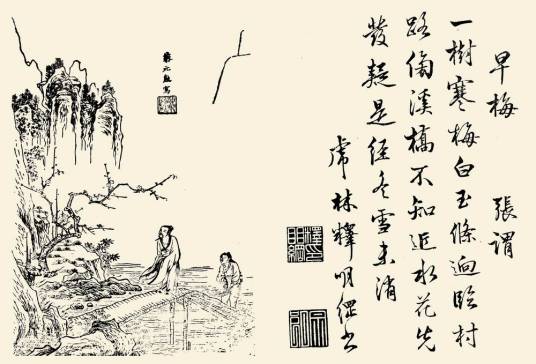 早梅 張謂
一樹寒梅白玉條迥臨村
路傍溪橋不知近水花先
發疑是經冬雪未消
虎林釋明綱書
蔡元勳寫